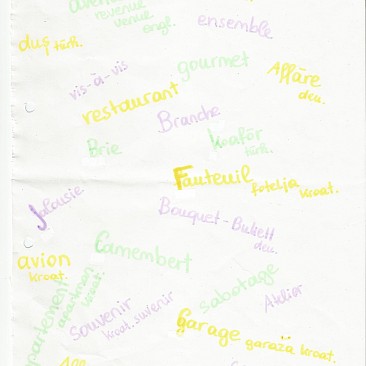 avenue
revenue
venue
engl.
ensemble
duş türk.
vis-à-vis
gourmet
Affäre
deu.
restaurant
Branche
Brie
kuaför
türk.
Fauteuil
fotelja kroat.
Jalousie
Bouquet - Bukett
deu.
avion
kroat.
Camembert
appartement
apartman
kroat.
souvenir
kroat. suvenir
sabotage
Atelier
Garage garaža kroat.